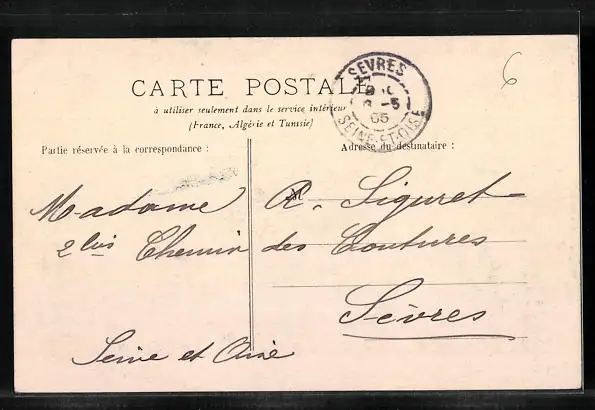 CARTE POSTALE
à utiliser seulement dans le service intérieur
(France, Algérie et Tunisie)
SEVRES
-5
05
SEINE-ET-OISE
6
Partie réservée à la correspondance :
Adresse du destinataire :
Madame A. Siguret
2 bis Chemin des Coutures
Sèvres
Seine et Oise